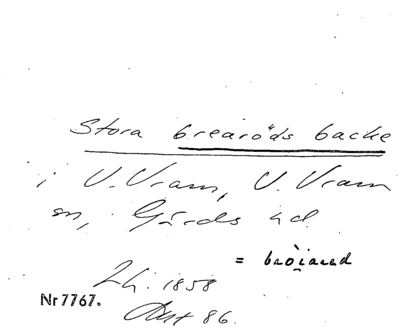 Stora brearöds backe
i V. Vram, V. Vram
sn, Gärds hd.
= bròiared
1858
Nr 7767.
86.